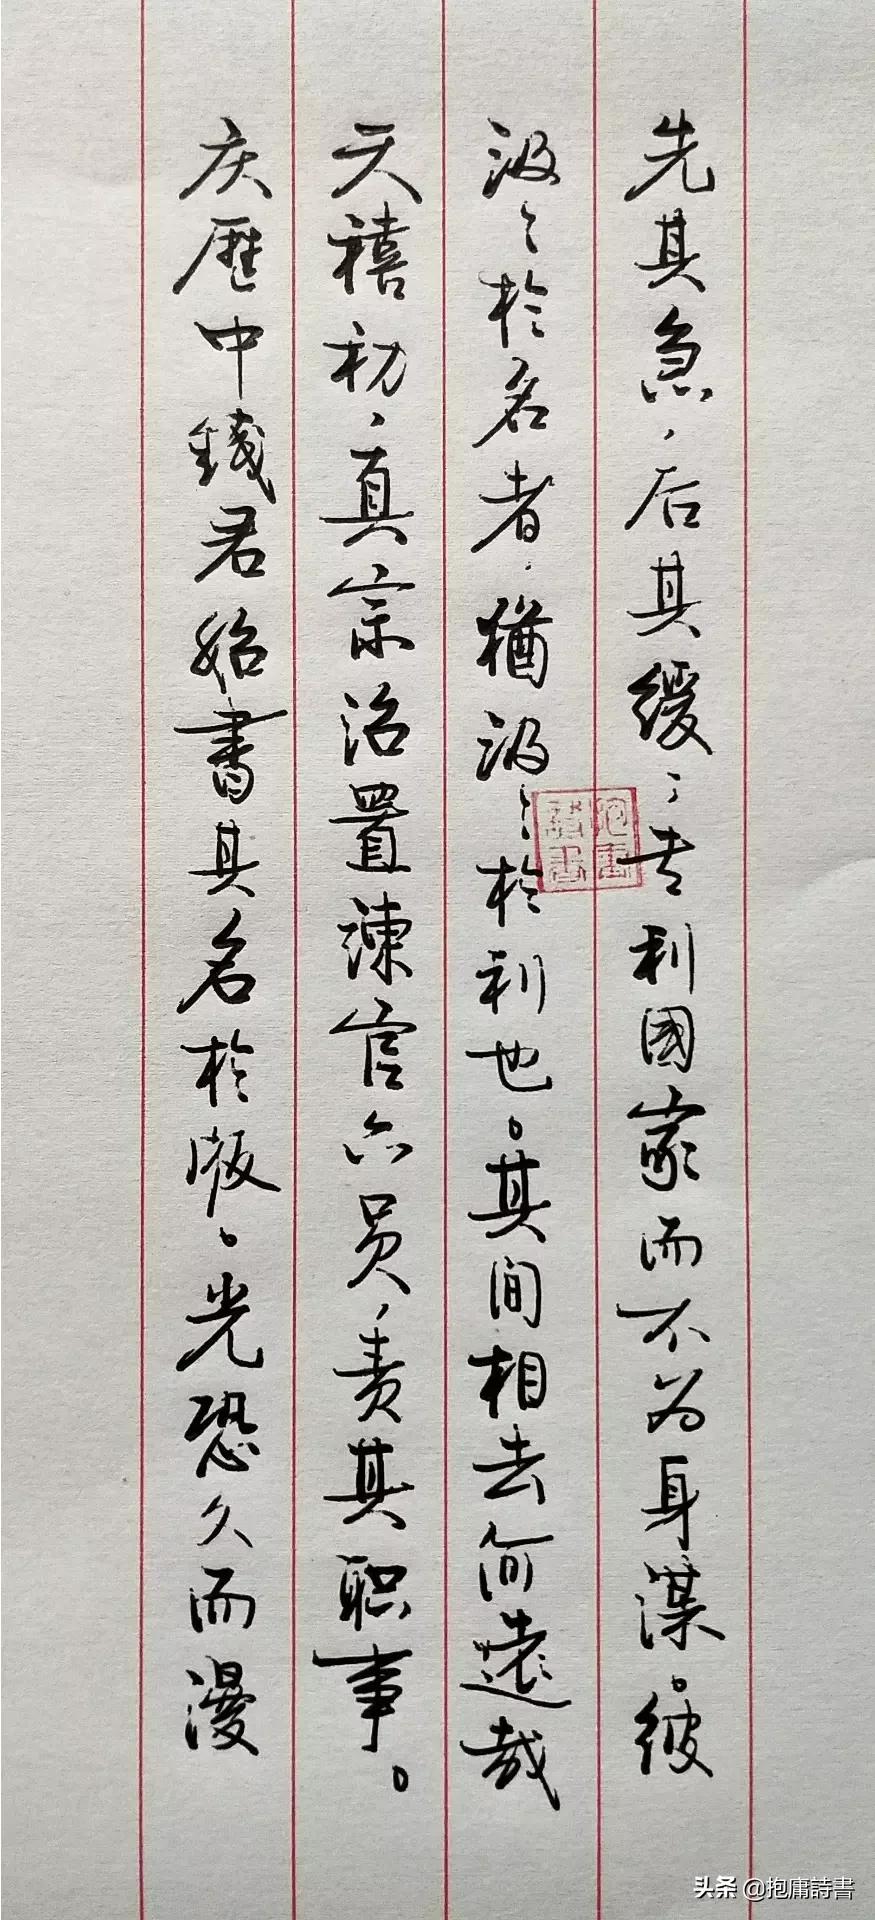 先其急，后其缓，专利國家而不为身谋。彼
汲々於名者，猶汲々於利也。其间相去何遠哉
天禧初，真宗诏置谏官六员，责其职事。
庆歷中錢君始書其名於版。光恐久而漫
抱庸詩書
头条 @抱庸詩書